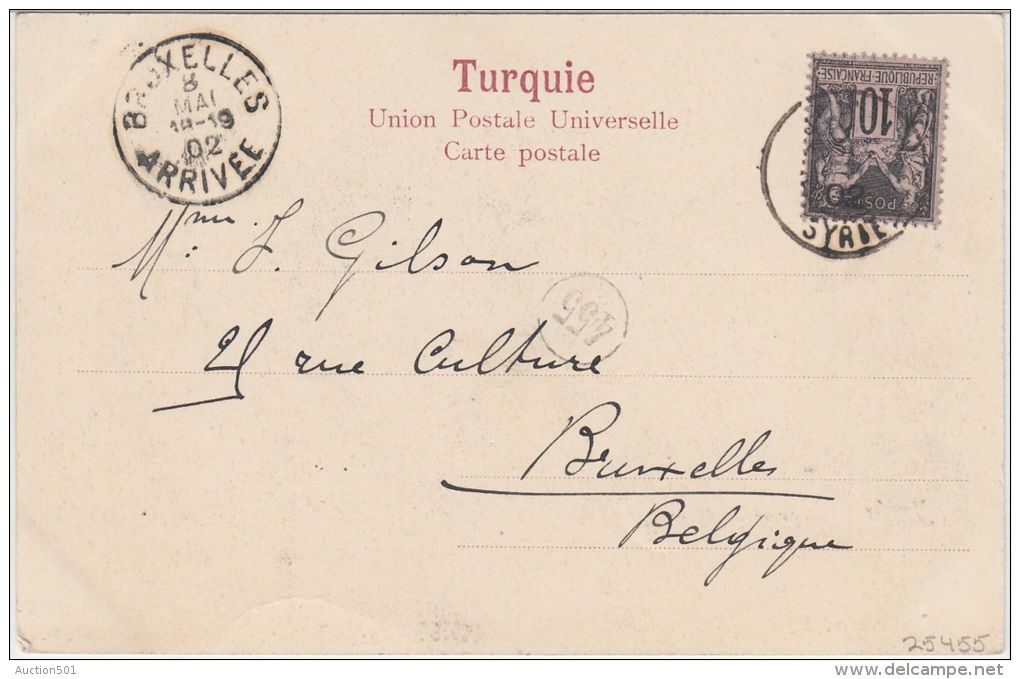 BRUXELLES
8
MAI
18-19
02
ARRIVEE
Turquie
Union Postale Universelle
Carte postale
REPUBLIQUE FRANÇAISE
10
POSTES
02
SYRIE
Mme J. Gilson
455
21 rue Culture
Bruxelles
Belgique
25455
Auction501
delcampe.net